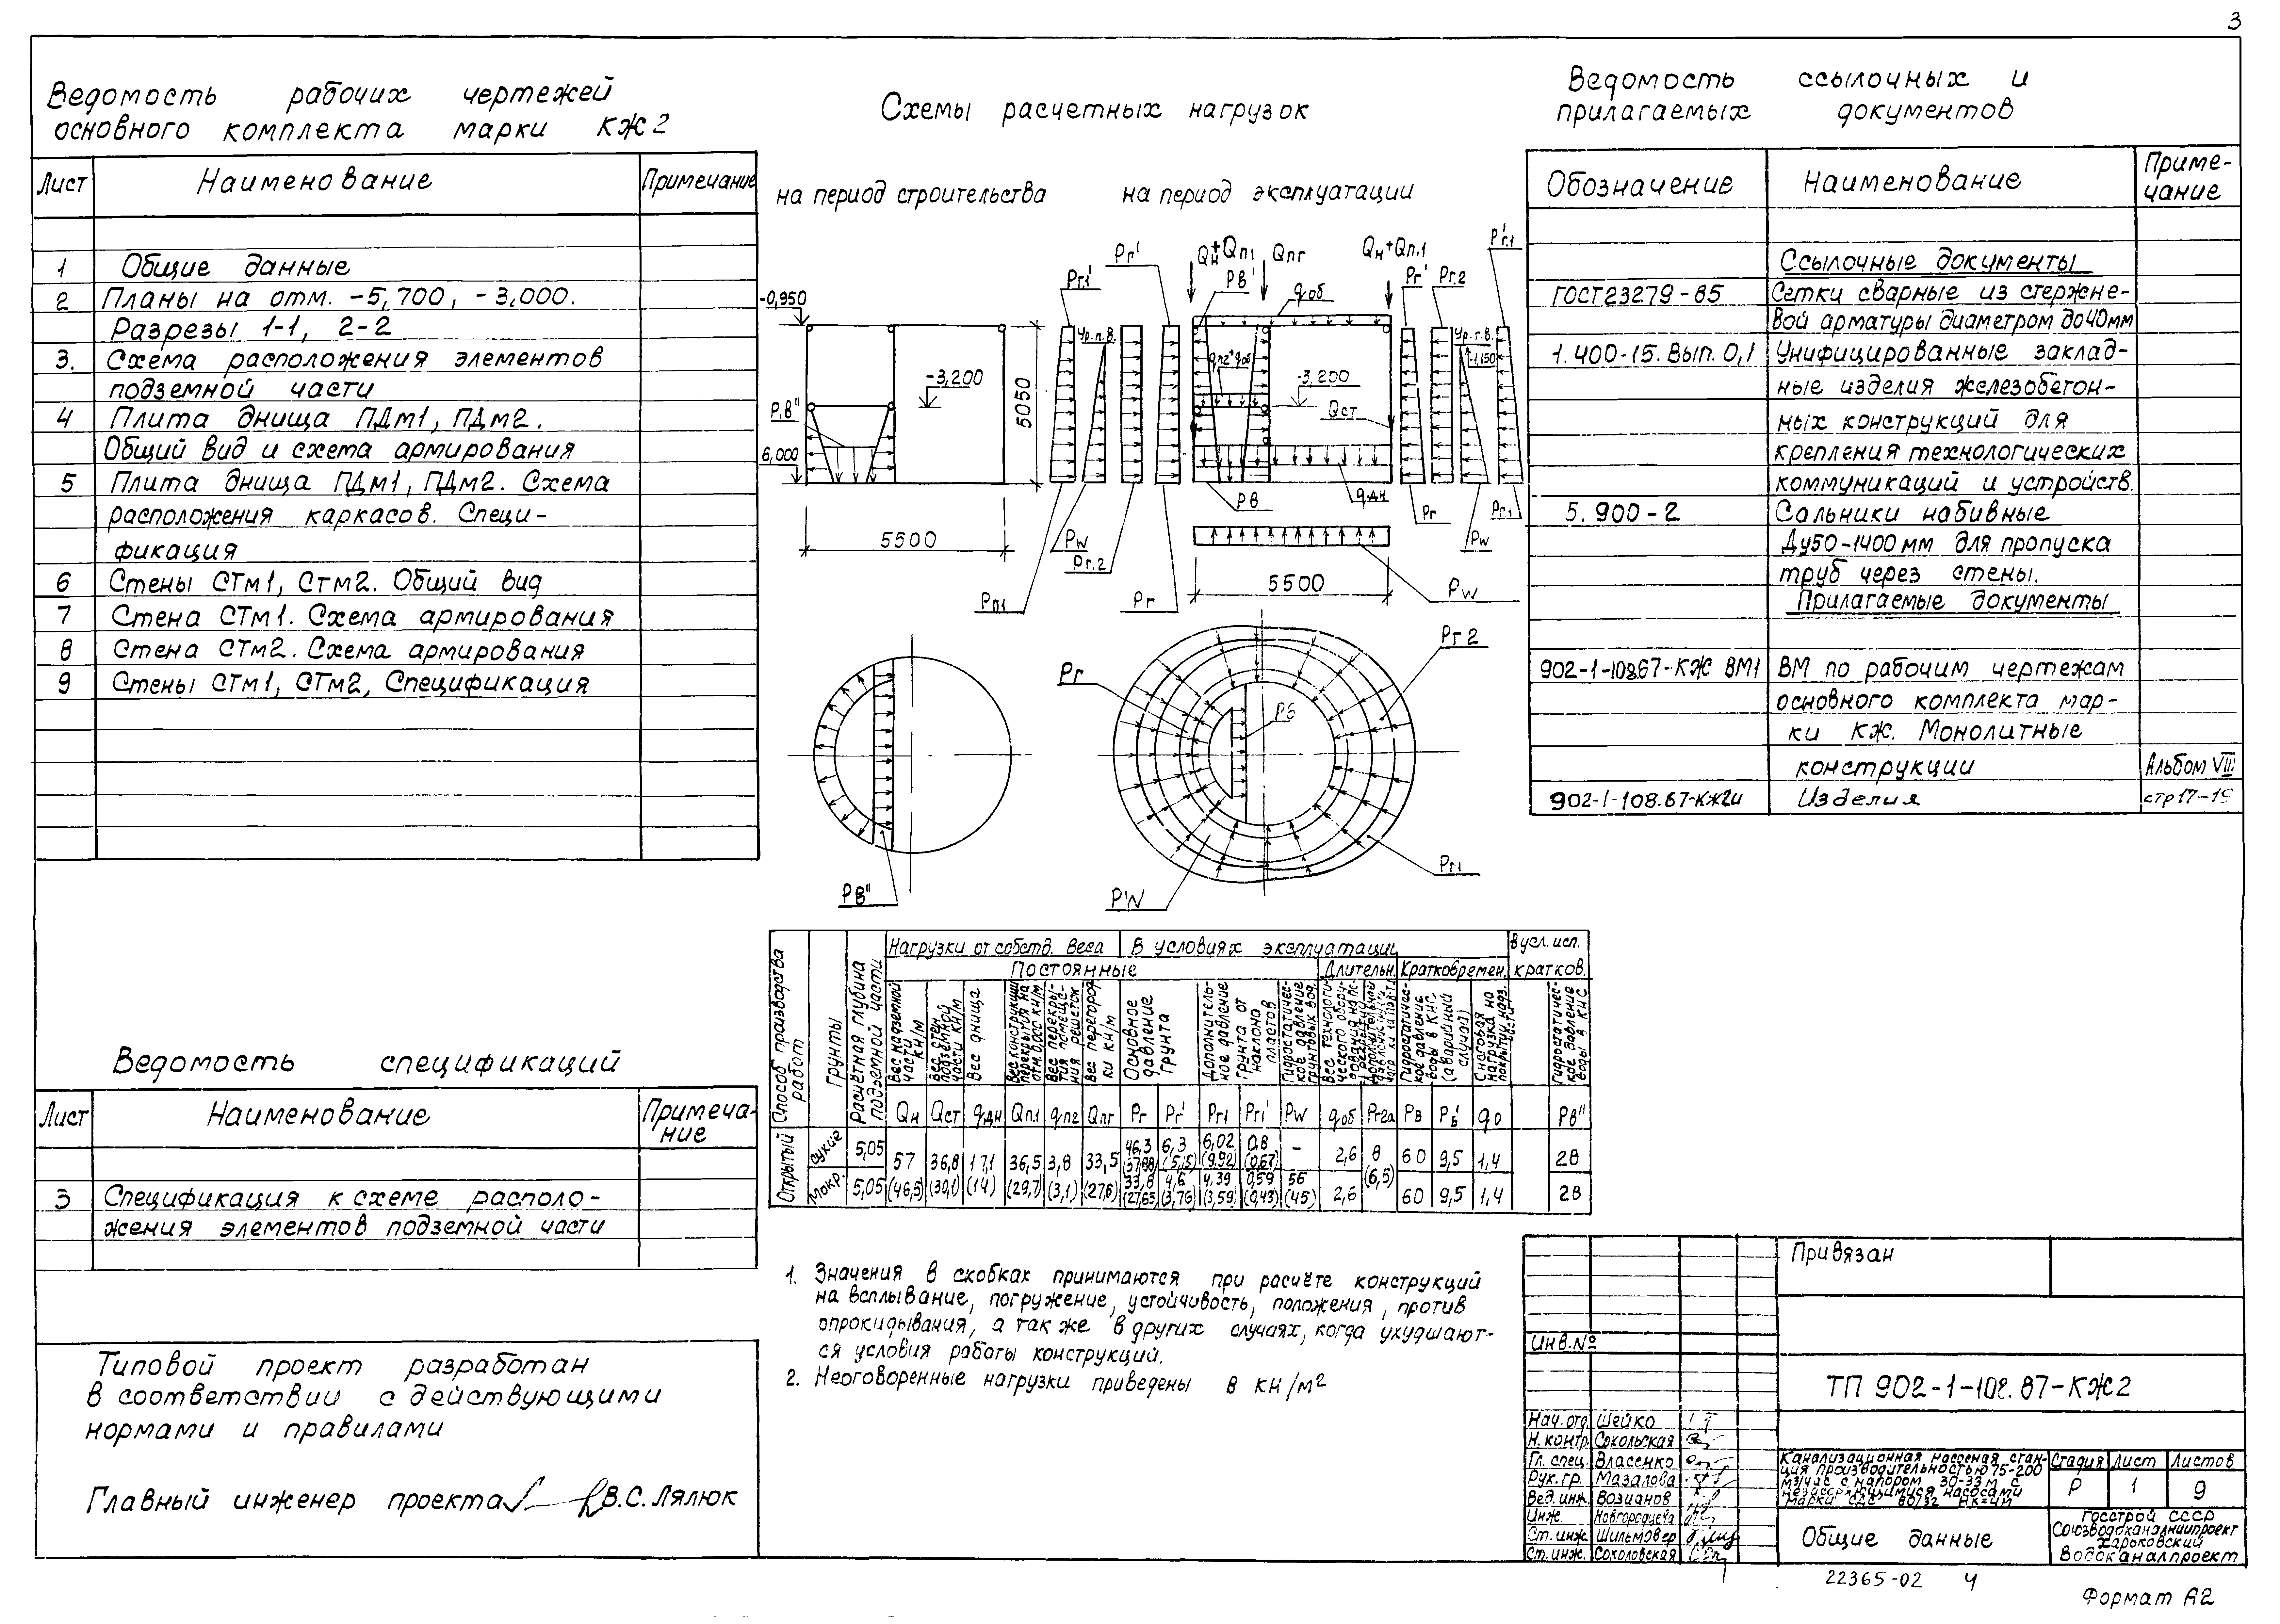 3
Ведомость рабочих чертежей
основного комплекта марки КЖ2
Лист Наименование Примечание
1 Общие данные
2 Планы на отм. -5,700, -3,000.
Разрезы 1-1, 2-2
3. Схема расположения элементов
подземной части
4 Плита днища ПДм1, ПДм2.
Общий вид и схема армирования
5 Плита днища ПДм1, ПДм2. Схема
расположения каркасов. Специ-
фикация
6 Стены СТм1, Стм2. Общий вид
7 Стена СТм1. Схема армирования
8 Стена СТм2. Схема армирования
9 Стены СТм1, СТм2, Спецификация
Ведомость спецификаций
Лист Наименование Примеча-
ние
3 Спецификация к схеме располо-
жения элементов подземной части
Типовой проект разработан
в соответствии с действующими
нормами и правилами
Главный инженер проекта В.С. Лялюк
Схемы расчетных нагрузок
на период строительства
на период эксплуатации
-0,950
-3,200
Р.в"
6,000
5050
5500
Рг.1'
Рг'
Ур.п.в.
Рw
Рг.2
Рп1
Рг
Qн+Qп1
Qпг
Qн+Qп.1
Рв'
qоб
qпг+qоб
-3,200
Qст
Рв
qдн
Рг'
Рг.2
Р'г.1
Ур.г.в.
-1,150
Рг
Рw
Рг.1
5500
Рw
Рв"
Рг
Рг2
Рб
Рг1
РW
Способ производства работ
Грунты
Расчётная глубина подземной части
Нагрузки от собств. веса В условиях эксплуатации В усл. исп.
Постоянные Длительн. Кратковремен. кратков.
Вес надземной части кн/м
Вес стен подземной части кн/м
Вес днища
Вес конструкции перекрытия на отм. 0,00 кн/м
Вес перекрытия помещения решеток
Вес перегородки кн/м
Основное давление грунта
Дополнительное давление грунта от наклона пластов
Гидростатическое давление грунтовых вод.
Гидростатическое давление воды в КНС (аварийный случай)
Снеговая нагрузка на покрытие надз. части
Гидростатическое давление воды в КНС
Qн Qст qдн Qп.1 qпг Qпг Рг Рг' Рг1 Рг1' Рw qоб Рг2а Рв Р'в q0 Рв"
Открытый
сухие 5,05 57 36,8 17,1 36,5 3,8 33,5 46,3 (37,88) 6,3 (5,15) 6,02 (9.92) 0,8 (0,67) – 2,6 8 60 9,5 1,4 28
мокр. 5,05 (46,5) (30,1) (14) (29,7) (3,1) (27,6) 33,8 (27,65) 4,6 (3,76) 4,39 (3,59) 0,59 (0,49) 56 (45) 2,6 (6,5) 60 9,5 1,4 28
1. Значения в скобках принимаются при расчёте конструкций
на всплывание, погружение, устойчивость, положения, против
опрокидывания, а так же в других случаях, когда ухудшают-
ся условия работы конструкций.
2. Неоговоренные нагрузки приведены в кн/м²
Ведомость ссылочных и
прилагаемых документов
Обозначение Наименование Приме-
чание
Ссылочные документы
ГОСТ 23279-85 Сетки сварные из стержне-
вой арматуры диаметром до 40мм
1.400-15. Вып. 0,1 Унифицированные заклад-
ные изделия железобетон-
ных конструкций для
крепления технологических
коммуникаций и устройств.
5.900-2 Сальники набивные
Ду50-1400 мм для пропуска
труб через стены.
Прилагаемые документы
902-1-108.67-КЖ ВМ1 ВМ по рабочим чертежам
основного комплекта мар-
ки КЖ. Монолитные
конструкции Альбом VII
902-1-108.67-КЖ2и Изделия стр 17-19
Привязан
Инв.№
ТП 902-1-108.87-КЖ2
Нач.отд. Шейко
Н. контр. Сокольская
Гл. спец. Власенко
Рук. гр. Мазалова
Вед. инж. Возианов
Инж. Новгородцева
Ст. инж. Шильмовер
Ст. инж. Соколовская
Канализационная насосная стан-
ция производительностью 75-200
м3/час с напором 30-33 м с
незасоряющимися насосами
марки СДС 80/32 Нк=4м
Стадия Лист Листов
Р 1 9
Общие данные
Госстрой СССР
Союзводоканалниипроект
Харьковский
Водоканалпроект
22365-02 4
Формат А2